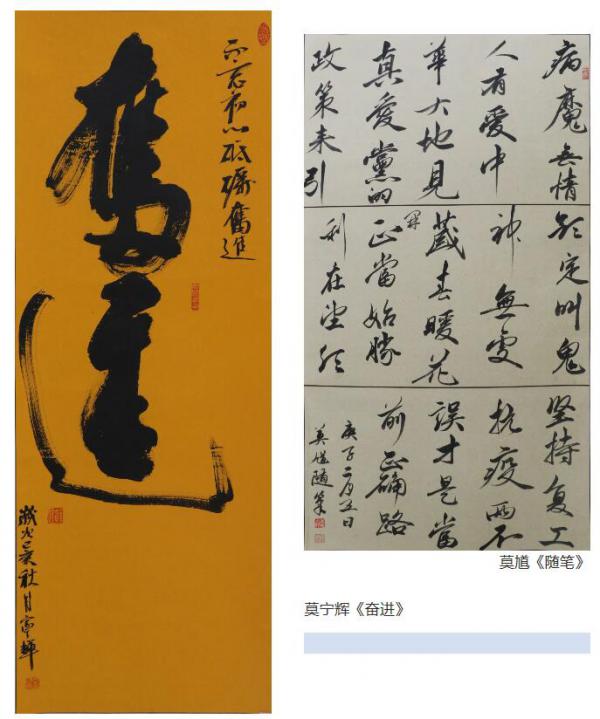 不忘初心砥礪奮進
奮進
歲次己亥秋月寧輝
病魔無情
人有愛中
華大地見
真愛黨的
政策来引
定叫鬼
神無處
藏春暖花
開正當始勝
利在望
坚持复工
抗疫两不
誤才是當
前正确路
庚子二月五日
莫馗隨筆
莫馗《随笔》
莫宁辉《奋进》